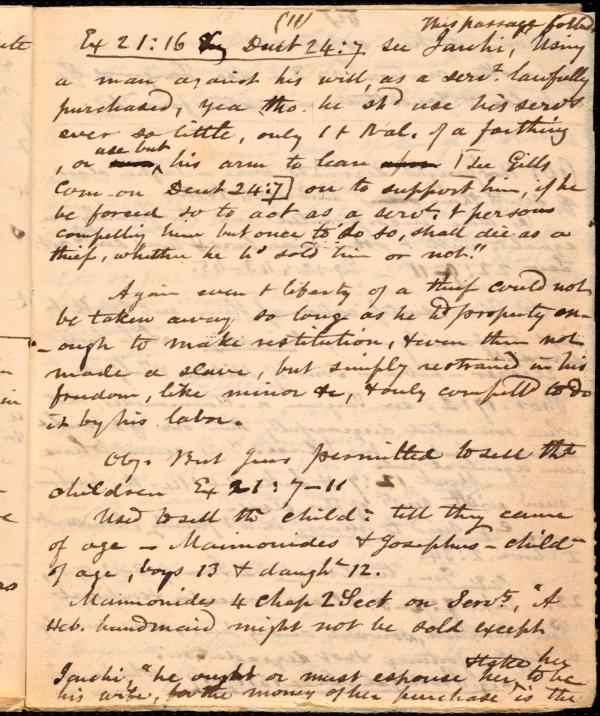 (11) This passage forbids
Ex 21:16 Deut 24:7 see Jarchi, Using
a man against his will, as a servt. lawfully
purchased, yea tho. he shd use his servs
ever so little, only t val. of a farthing
, or use but his arm to lean upon [see Gills
Com. on Deut 24:7] on to support him, if he
be forced so to act as a servt, t person
compelling him but once to do so, shall die as a
thief, whether he hd sold him or not."
Again even t liberty of a thief could not
be taken away so long as he hd property en-
-ough to make restitution, & even then not
made a slave, but simply restrained in his
freedom, like minor &c, & only compelld to do
it by his labor.
Obj. But Jews permitted to sell thr
children Ex 21:7-11
Used to sell thr childn till they came
of age - Maimonides & Josephus - childn
of age, boys 13 & daught 12.
Maimonides 4 Chap 2 Sect on Servts, "A
Heb. handmaid might not be sold except
Jarchi, "he ought or must espouse her to be
his wife, for the money of her purchase is the